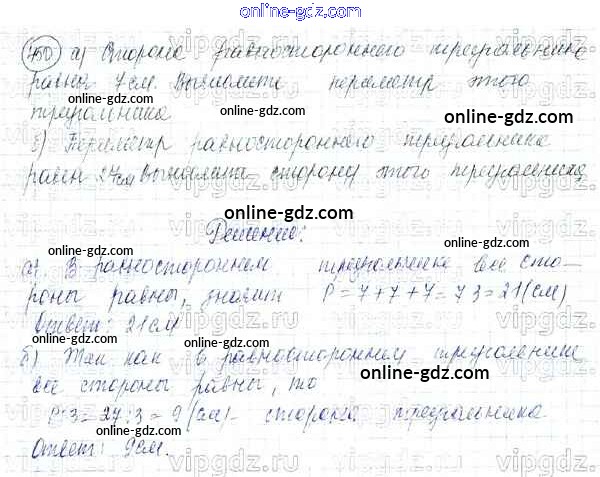 online-gdz.com
450 а) Сторона равностороннего треугольника
online-gdz.com
равна 7 см. Вычислите периметр этого
online-gdz.com
треугольника
online-gdz.com
б) Периметр равностороннего треугольника
online-gdz.com
равен 27 см Вычислите сторону этого треугольника
online-gdz.com
Решение:
online-gdz.com
а). В равностороннем треугольнике все сто-
online-gdz.com
роны равны, значит P=7+7+7=7·3=21(см)
Ответ: 21 см
online-gdz.com
б) Так как в равностороннем треугольнике
online-gdz.com
все стороны равны, то
online-gdz.com
P:3=27:3=9 (см)- сторона треугольника
online-gdz.com
Ответ: 9см.
vipgdz.com